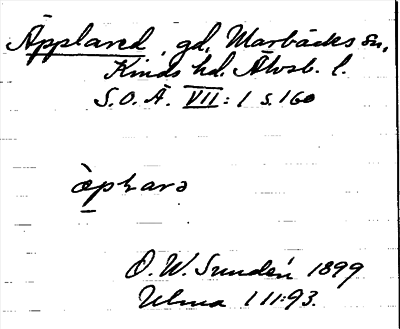 Äpplared, gd, Marbäcks sn,
Kinds hd. Älvsb. l.
S.O.Ä. VII: 1 s. 160
O. W. Sundén 1899
Ulma 111:93.